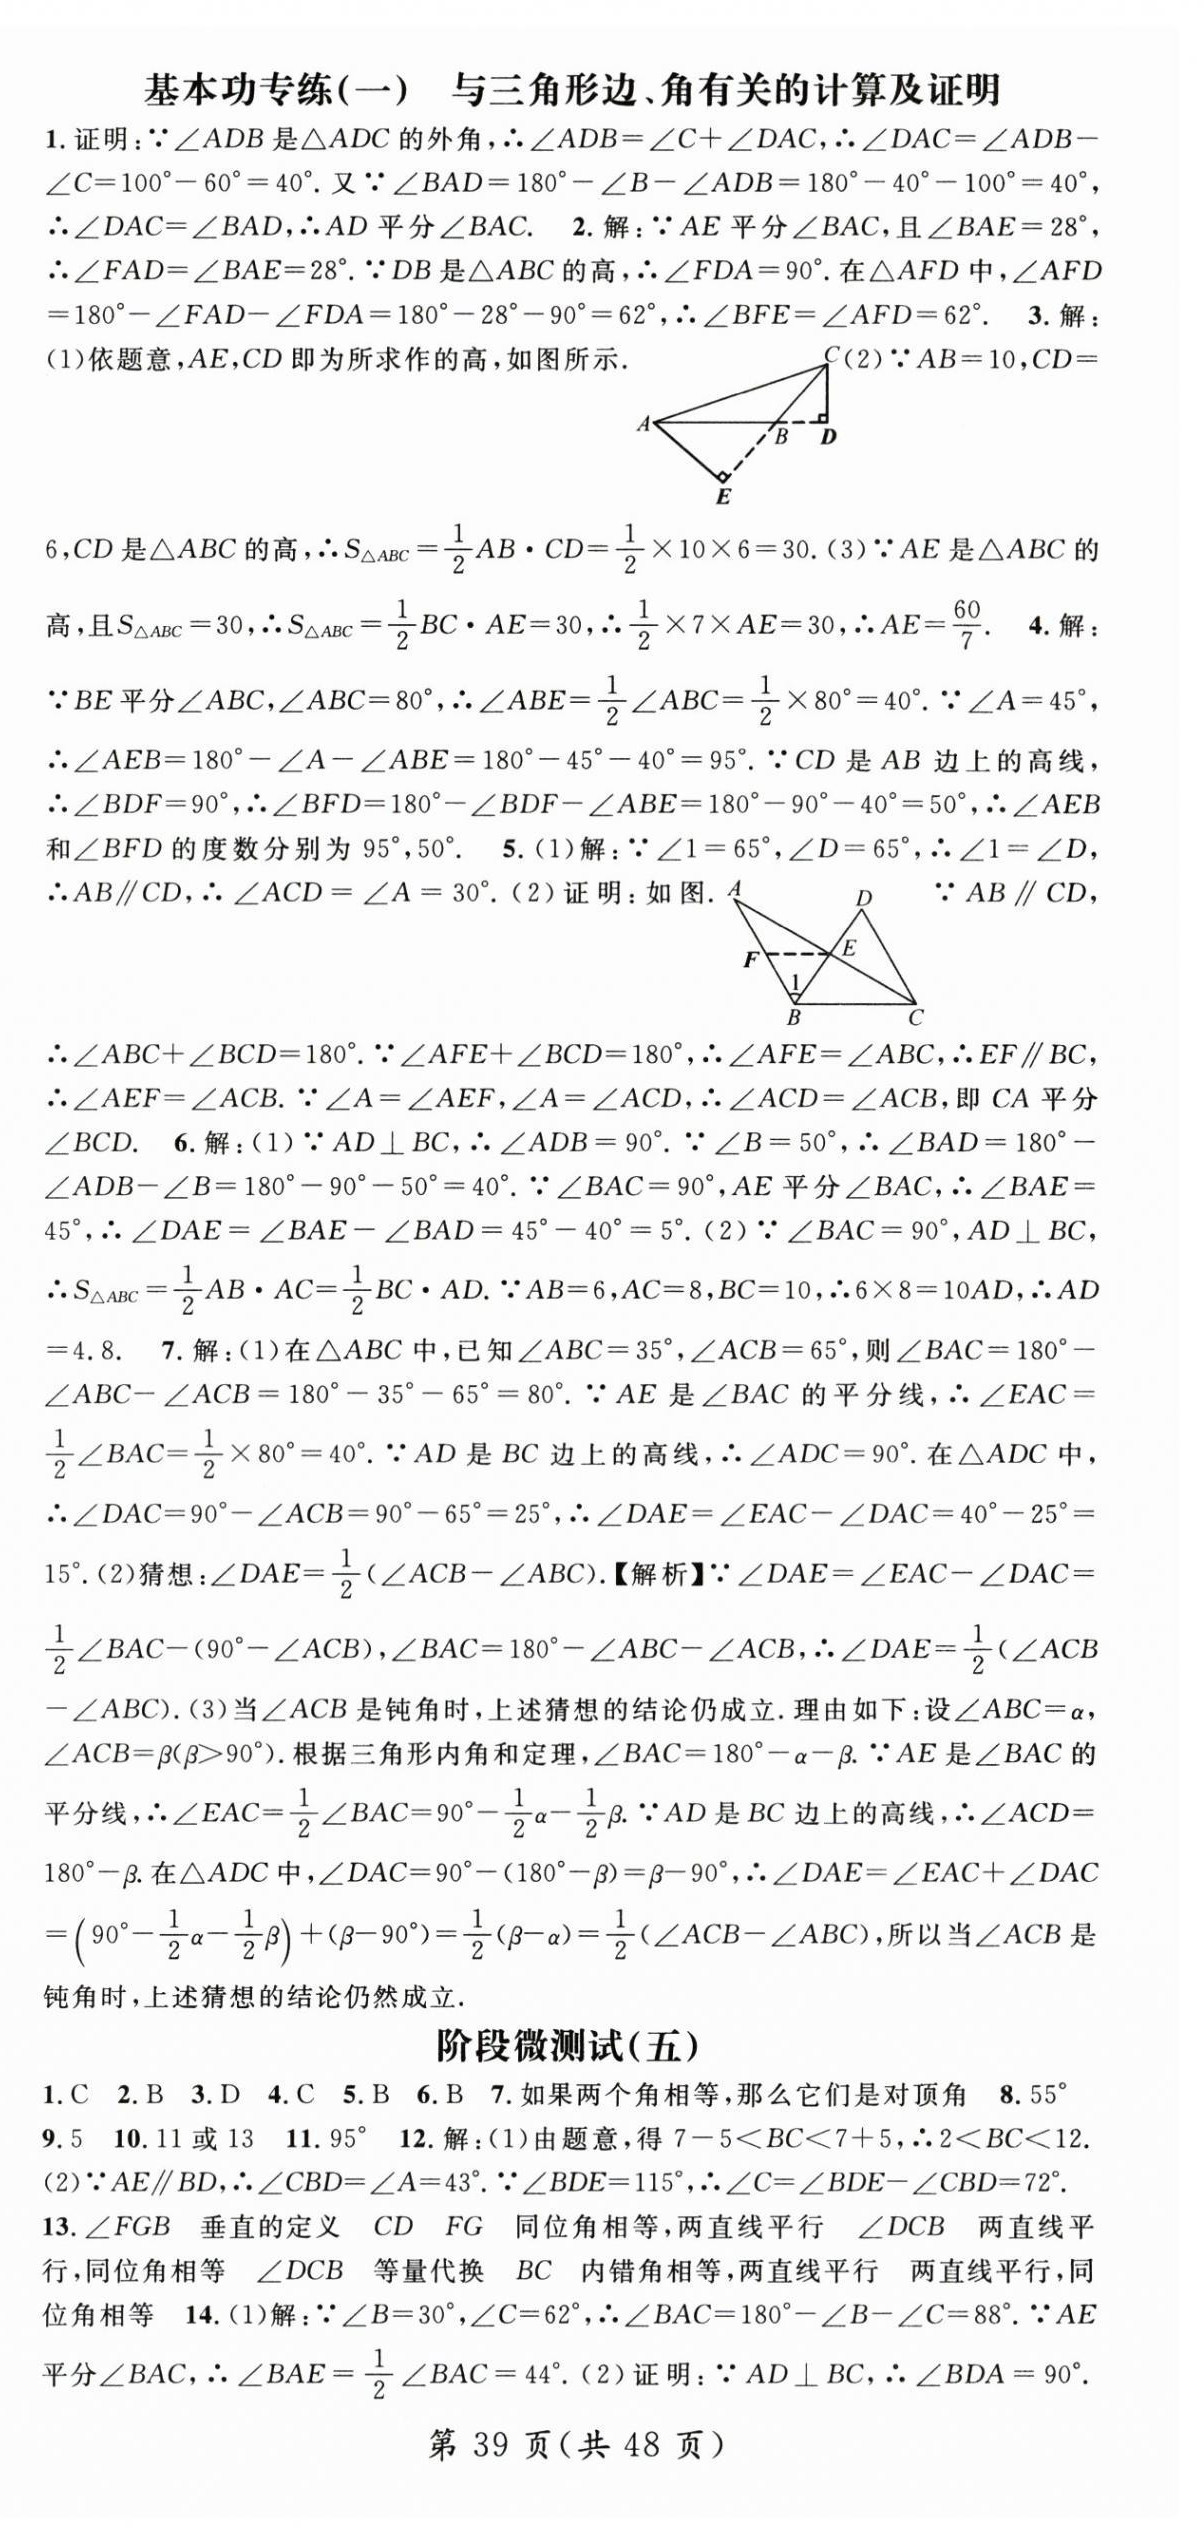 基本功专练(一) 与三角形边、角有关的计算及证明
1. 证明:∵∠ADB 是△ADC 的外角,∴∠ADB=∠C+∠DAC,∴∠DAC=∠ADB-
∠C=100°-60°=40°. 又∵∠BAD=180°-∠B-∠ADB=180°-40°-100°=40°,
∴∠DAC=∠BAD,∴AD 平分∠BAC. 2. 解:∵AE 平分∠BAC,且∠BAE=28°,
∴∠FAD=∠BAE=28°. ∵DB 是△ABC 的高,∴∠FDA=90°. 在△AFD 中,∠AFD
=180°-∠FAD-∠FDA=180°-28°-90°=62°,∴∠BFE=∠AFD=62°. 3. 解:
(1)依题意,AE,CD 即为所求作的高,如图所示. (2)∵AB=10,CD=
C
A
B
D
E
6,CD 是△ABC 的高,∴S△ABC=1/2AB·CD=1/2×10×6=30. (3)∵AE 是△ABC 的
高,且S△ABC=30,∴S△ABC=1/2BC·AE=30,∴1/2×7×AE=30,∴AE=60/7. 4. 解:
∵BE 平分∠ABC,∠ABC=80°,∴∠ABE=1/2∠ABC=1/2×80°=40°. ∵∠A=45°,
∴∠AEB=180°-∠A-∠ABE=180°-45°-40°=95°. ∵CD 是 AB 边上的高线,
∴∠BDF=90°,∴∠BFD=180°-∠BDF-∠ABE=180°-90°-40°=50°,∴∠AEB
和∠BFD 的度数分别为 95°,50°. 5. (1)解:∵∠1=65°,∠D=65°,∴∠1=∠D,
∴AB∥CD,∴∠ACD=∠A=30°. (2)证明:如图. ∵AB∥CD,
A
D
F
E
1
B
C
∴∠ABC+∠BCD=180°. ∵∠AFE+∠BCD=180°,∴∠AFE=∠ABC,∴EF∥BC,
∴∠AEF=∠ACB. ∵∠A=∠AEF,∠A=∠ACD,∴∠ACD=∠ACB,即 CA 平分
∠BCD. 6. 解:(1)∵AD⊥BC,∴∠ADB=90°. ∵∠B=50°,∴∠BAD=180°-
∠ADB-∠B=180°-90°-50°=40°. ∵∠BAC=90°,AE 平分∠BAC,∴∠BAE=
45°,∴∠DAE=∠BAE-∠BAD=45°-40°=5°. (2)∵∠BAC=90°,AD⊥BC,
∴S△ABC=1/2AB·AC=1/2BC·AD. ∵AB=6,AC=8,BC=10,∴6×8=10AD,∴AD
=4.8. 7. 解:(1)在△ABC 中,已知∠ABC=35°,∠ACB=65°,则∠BAC=180°-
∠ABC-∠ACB=180°-35°-65°=80°. ∵AE 是∠BAC 的平分线,∴∠EAC=
1/2∠BAC=1/2×80°=40°. ∵AD 是 BC 边上的高线,∴∠ADC=90°. 在△ADC 中,
∴∠DAC=90°-∠ACB=90°-65°=25°,∴∠DAE=∠EAC-∠DAC=40°-25°=
15°. (2)猜想:∠DAE=1/2(∠ACB-∠ABC). 【解析】∵∠DAE=∠EAC-∠DAC=
1/2∠BAC-(90°-∠ACB),∠BAC=180°-∠ABC-∠ACB,∴∠DAE=1/2(∠ACB
-∠ABC). (3)当∠ACB 是钝角时,上述猜想的结论仍成立. 理由如下:设∠ABC=α,
∠ACB=β(β>90°). 根据三角形内角和定理,∠BAC=180°-α-β. ∵AE 是∠BAC 的
平分线,∴∠EAC=1/2∠BAC=90°-1/2α-1/2β. ∵AD 是 BC 边上的高线,∴∠ACD=
180°-β. 在△ADC 中,∠DAC=90°-(180°-β)=β-90°,∴∠DAE=∠EAC+∠DAC
=(90°-1/2α-1/2β)+(β-90°)=1/2(β-α)=1/2(∠ACB-∠ABC),所以当∠ACB 是
钝角时,上述猜想的结论仍然成立.
阶段微测试(五)
1. C 2. B 3. D 4. C 5. B 6. B 7. 如果两个角相等,那么它们是对顶角 8. 55°
9. 5 10. 11 或 13 11. 95° 12. 解:(1)由题意,得 7-5<BC<7+5,∴2<BC<12.
(2)∵AE∥BD,∴∠CBD=∠A=43°. ∵∠BDE=115°,∴∠C=∠BDE-∠CBD=72°.
13. ∠FGB 垂直的定义 CD FG 同位角相等,两直线平行 ∠DCB 两直线平
行,同位角相等 ∠DCB 等量代换 BC 内错角相等,两直线平行 两直线平行,同
位角相等 14. (1)解:∵∠B=30°,∠C=62°,∴∠BAC=180°-∠B-∠C=88°. ∵AE
平分∠BAC,∴∠BAE=1/2∠BAC=44°. (2)证明:∵AD⊥BC,∴∠BDA=90°.
第 39 页(共 48 页)